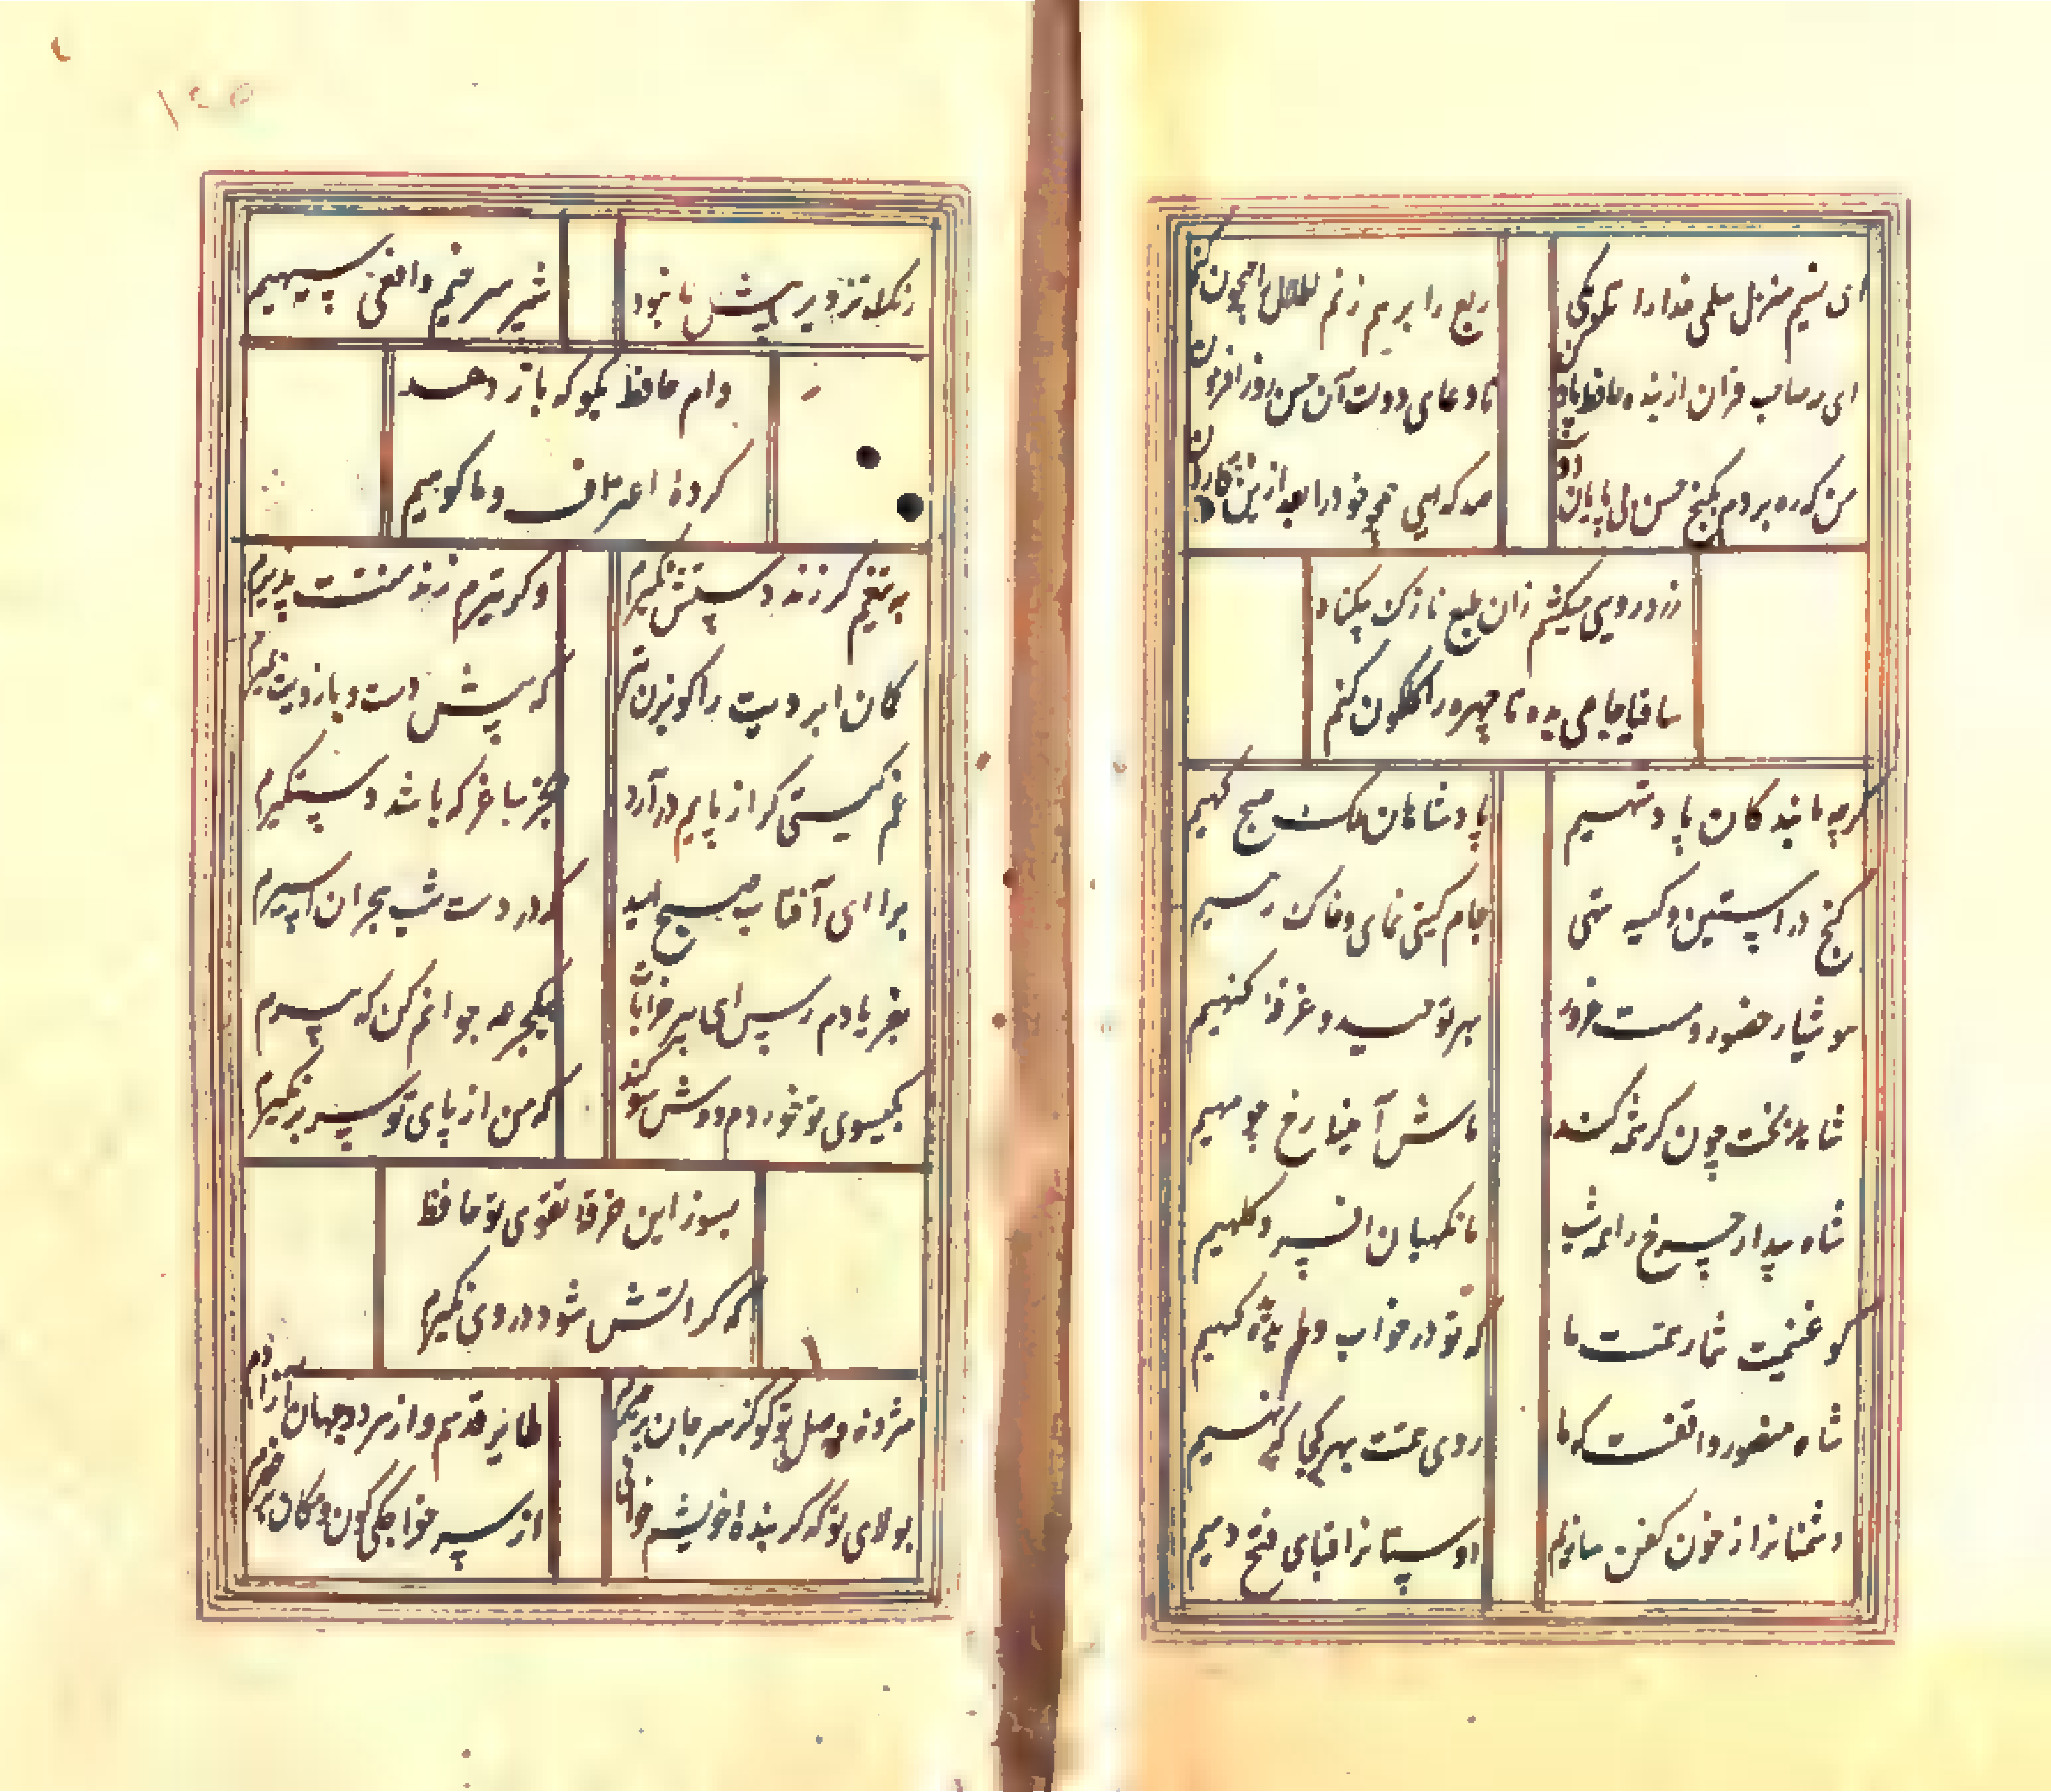 ای نسیم منزل سلمی خدارا تا بکی
ربع را برهم زنم اطلال را جیحون کنم
ای مه صاحب قران از بنده حافظ یاد کن
تا دعای دولت آن حسن روز افزون کنم
من که ره بردم بکنج حسن بی پایان دوست
صد کدای همچو خود را بعد ازین قارون کنم
زرد رویی میکشم زان طبع نازک بیکناه
ساقیا جامی بده تا چهره را کلکون کنم
کرچه ما بندکان پادشهیم
پادشاهان ملک صبح کهیم
کنج در استین و کیسه تهی
جام کیتی نمای و خاک رهیم
هوشیار حضور و مست غرور
بحر توحید و غرقه کنهیم
شاهد بخت چون کرشمه کند
ماش آیینه رخ چو مهیم
شاه بیدار بخت را همه شب
ما نکهبان افسر و کلهیم
کو غنیمت شمار همت ما
که تو در خواب و ما بدیده کهیم
شاه منصور واقفست که ما
روی همت بهر کجا که نهیم
دشمنانرا ز خون کفن سازیم
دوستانرا قبای فتح دهیم
رنک تزویر پیش ما نبود
شیر سرخیم و افعی سیهیم
وام حافظ بکو که باز دهند
کردۀ اعتراف و ما کوهیم
به تیغم کر زند دستش نکیرم
وکر تیرم زند منت پذیرم
کمان ابرویت را کو بزن تیر
که پیش دست و بازویت بمیرم
غم کیتی کر از پایم درآرد
بجز ساغر که باشد دستکیرم
برا ای آفتاب صبح امید
که در دست شب هجران اسیرم
بفریادم رس ای پیر خرابات
بیکجرعه جوانم کن که پیرم
بکیسوی تو خوردم دوش سوکند
که من از پای تو سر برنکیرم
بسوز این خرقه تقوی تو حافظ
که کر اتش شوم در وی نکیرم
مژده وصل تو کو کز سر جان برخیزم
طایر قدسم و از هر دو جهان برخیزم
بولای تو که کر بندۀ خویشم خوانی
از سر خواجکی کون و مکان برخیزم